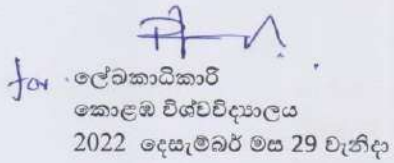 for ලේඛකාධිකාරි
කොළඹ විශ්වවිද්‍යාලය
2022 දෙසැම්බර් මස 29 වැනිදා